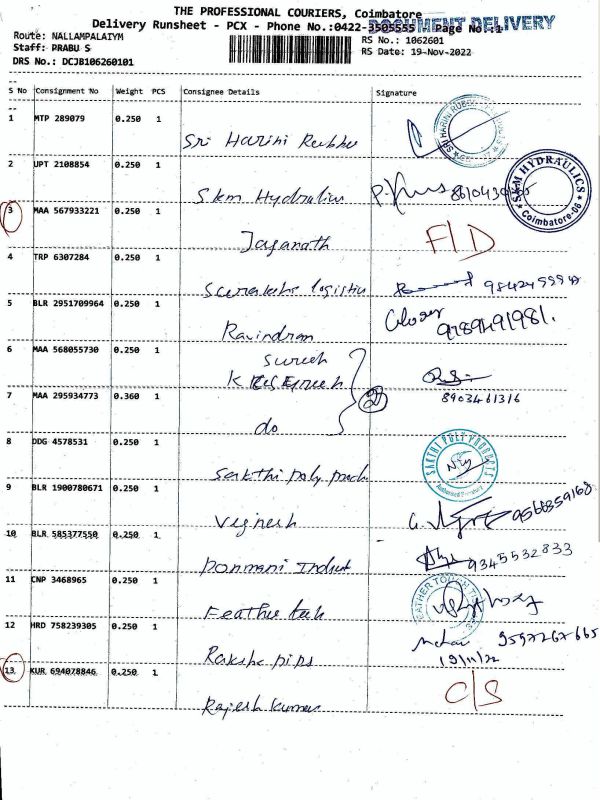 THE PROFESSIONAL COURIERS, Coimbatore
DOCUMENT DELIVERY
Delivery Runsheet - PCX - Phone No.:0422-3505555 Page No.:1
Route: NALLAMPALAIYM
RS No.: 1062601
Staff: PRABU S
RS Date: 19-Nov-2022
DRS No.: DCJB106260101
S No Consignment No Weight PCS Consignee Details Signature
1 MTP 289079 0.250 1
Sri Harini
2 UPT 2108854 0.250 1
SKM HYDRAULICS
Coimbatore-06
Skm Hydralics
3 MAA 567933221 0.250 1
Jaganath F/D
4 TRP 6307284 0.250 1
logistics
5 BLR 2951709964 0.250 1
Ravindran 9789491981.
6 MAA 568055730 0.250 1
Suresh
K
7 MAA 295934773 0.360 1
8903461316
do
8 DDG 4578531 0.250 1
SAKTHI POLY PRODUCTS
Sakthi poly
9 BLR 1900780671 0.250 1
Vignesh 9566359168
10 BLR 585377550 0.250 1
Ponmani 9345532833
11 CNP 3468965 0.250 1
FEATHER TOUCH
Feather
12 HRD 758239305 0.250 1
9597267665
19/11/22
Raksha pips
13 KUR 694078846 0.250 1
C/S
Rajesh Kumar